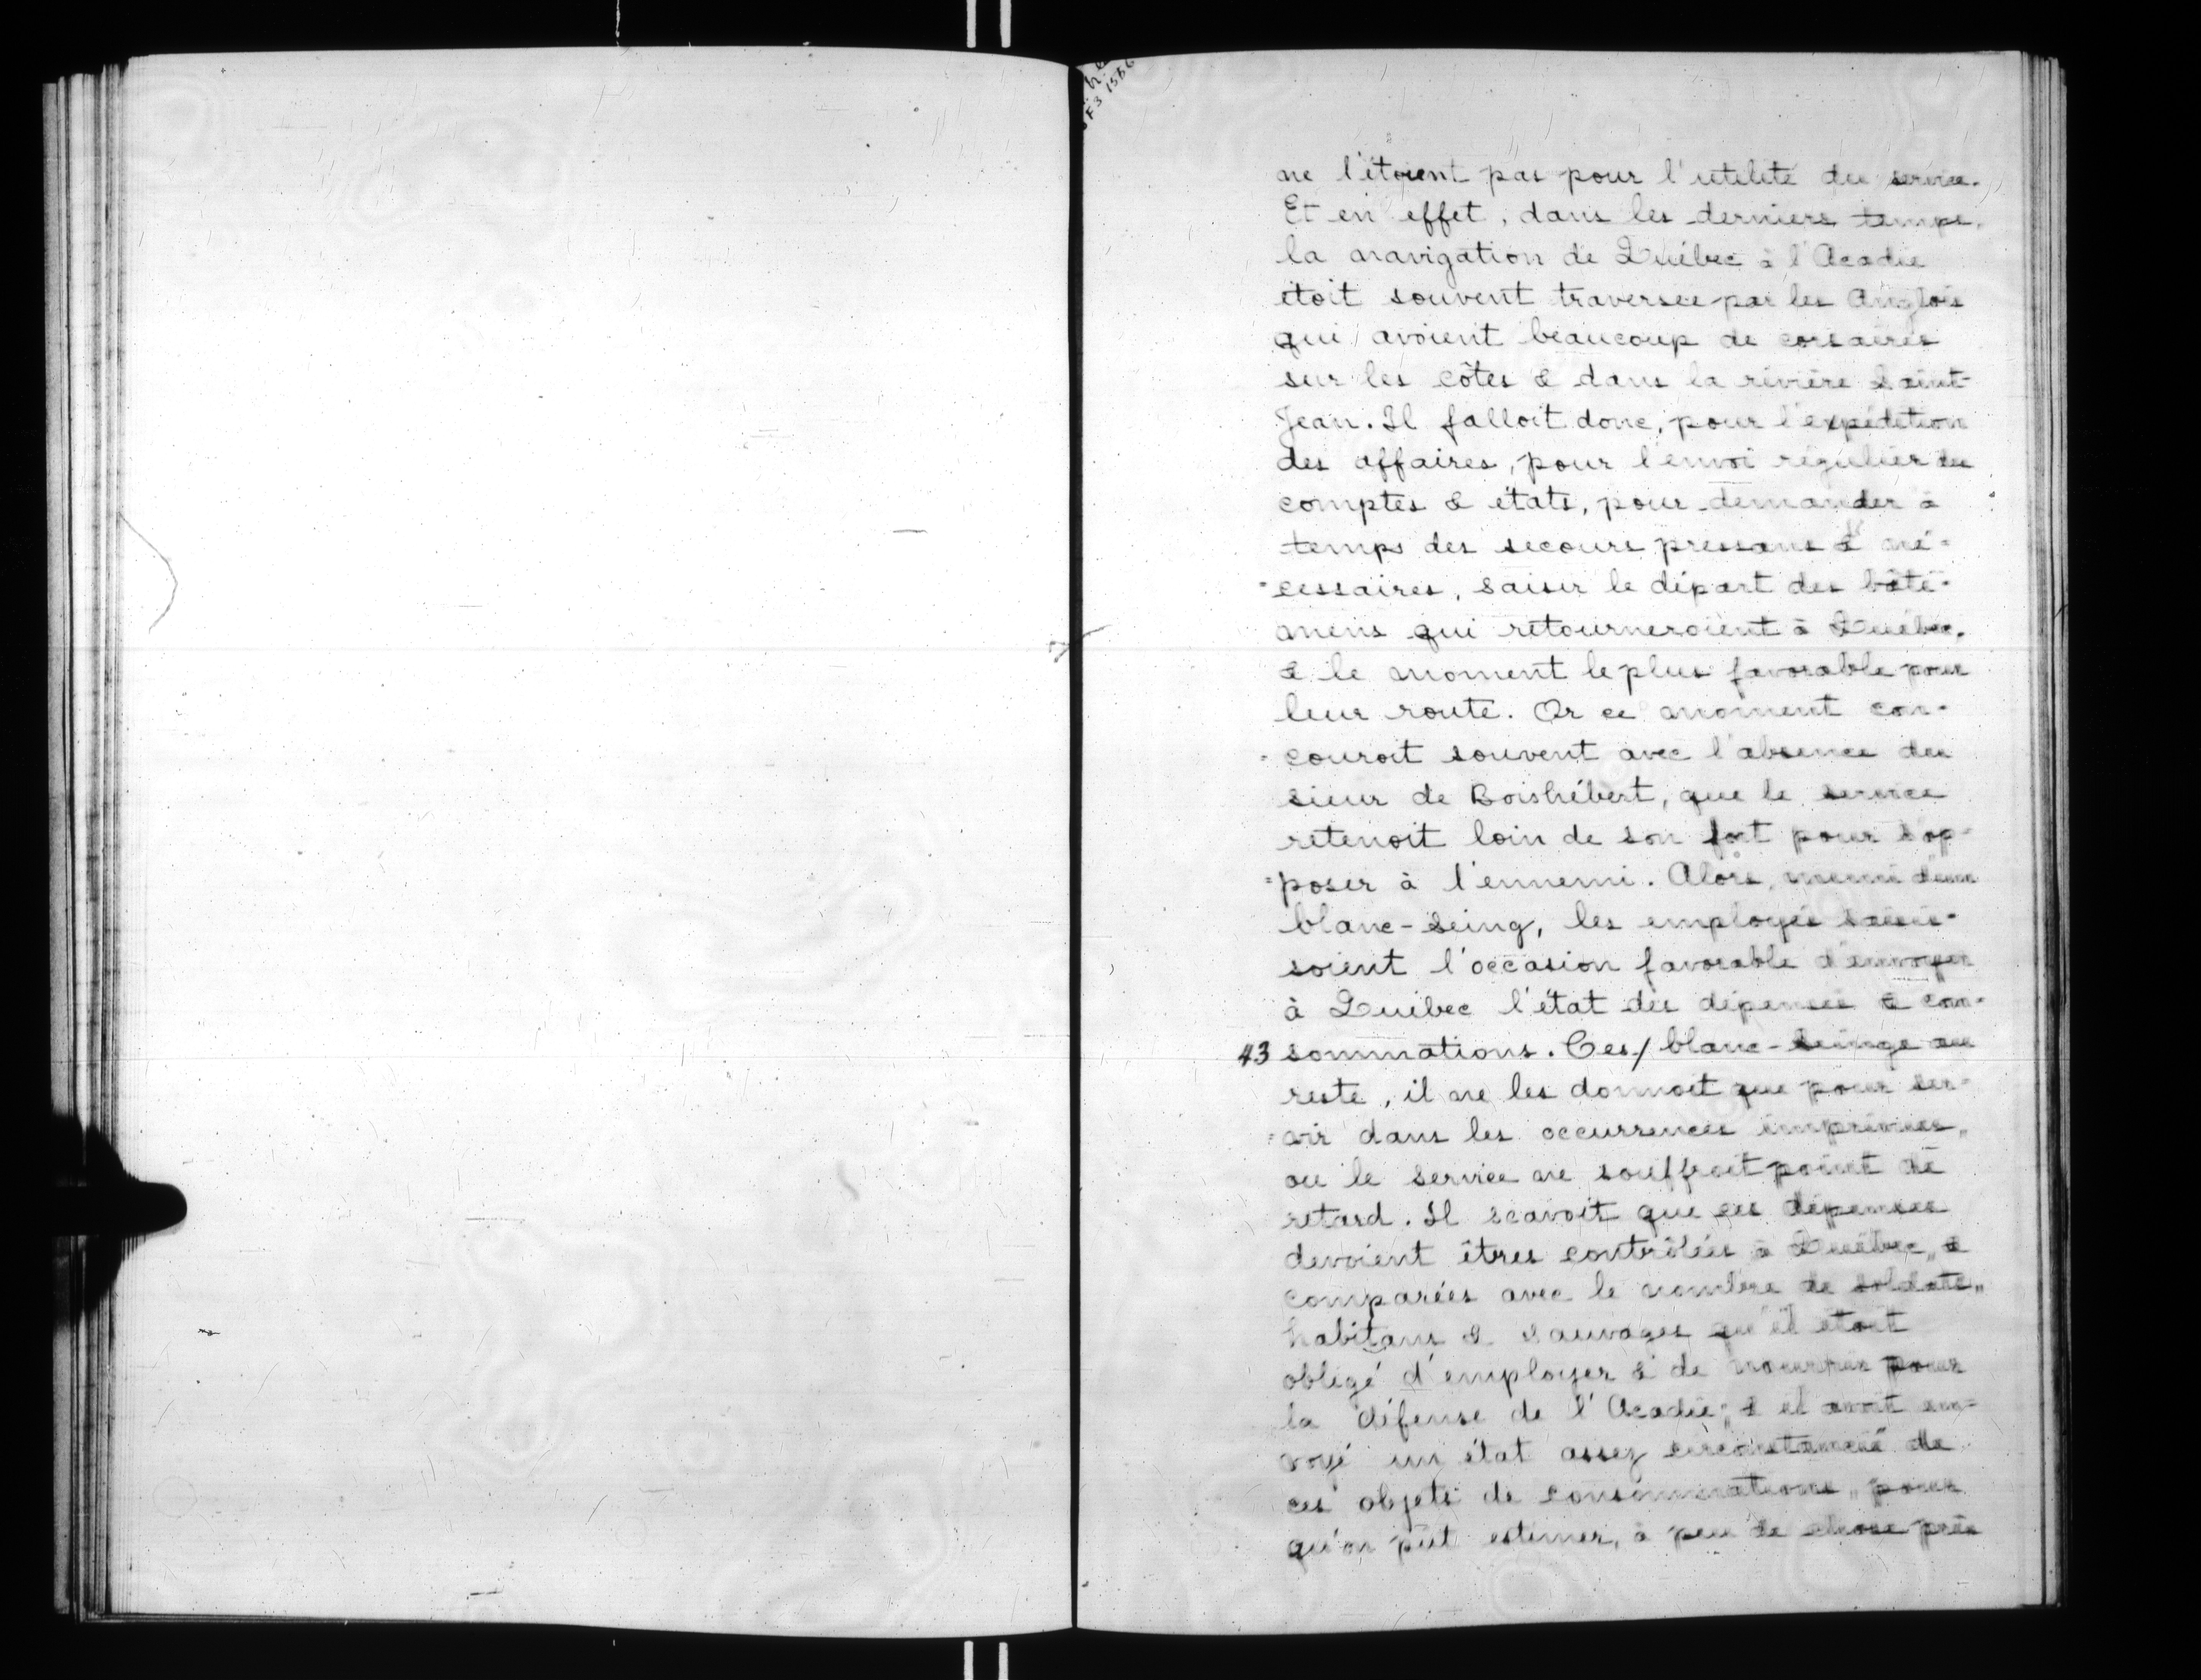 ne l'étoient pas pour l'utilité du service.
Et en effet, dans les derniers temps,
la navigation de Québec à l'Acadie
étoit souvent traversée par les Anglois
qui avoient beaucoup de corsaires
sur les côtes & dans la rivière Saint-
Jean. Il falloit donc, pour l'expédition
des affaires, pour l'envoi régulier des
comptes & états, pour demander à
temps des secours pressans & né-
-cessaires, saisir le départ des bâti-
mens qui retourneroient à Québec,
& le moment le plus favorable pour
leur route. Or ce moment con-
-couroit souvent avec l'absence du
sieur de Boishébert, que le service
retenoit loin de son fort pour s'op-
-poser à l'ennemi. Alors, muni d'un
blanc-seing, les employés saisis-
soient l'occasion favorable d'envoyer
à Québec l'état des dépenses & con-
43 sommations. Ces/ blanc-seings au
reste, il ne les donnoit que pour ser-
-vir dans les occurrences imprévues,
ou le service ne souffroit point de
retard. Il scavoit que ces dépenses
devoient êtres contrôlées à Québec, &
comparées avec le nombre de soldats,
habitans & sauvages qu'il étoit
obligé d'employer & de nourrir pour
la défense de l'Acadie; & il avoit en-
voyé un état assez circonstancié de
ces objets de consommations, pour
qu'on pût estimer, à peu de chose près